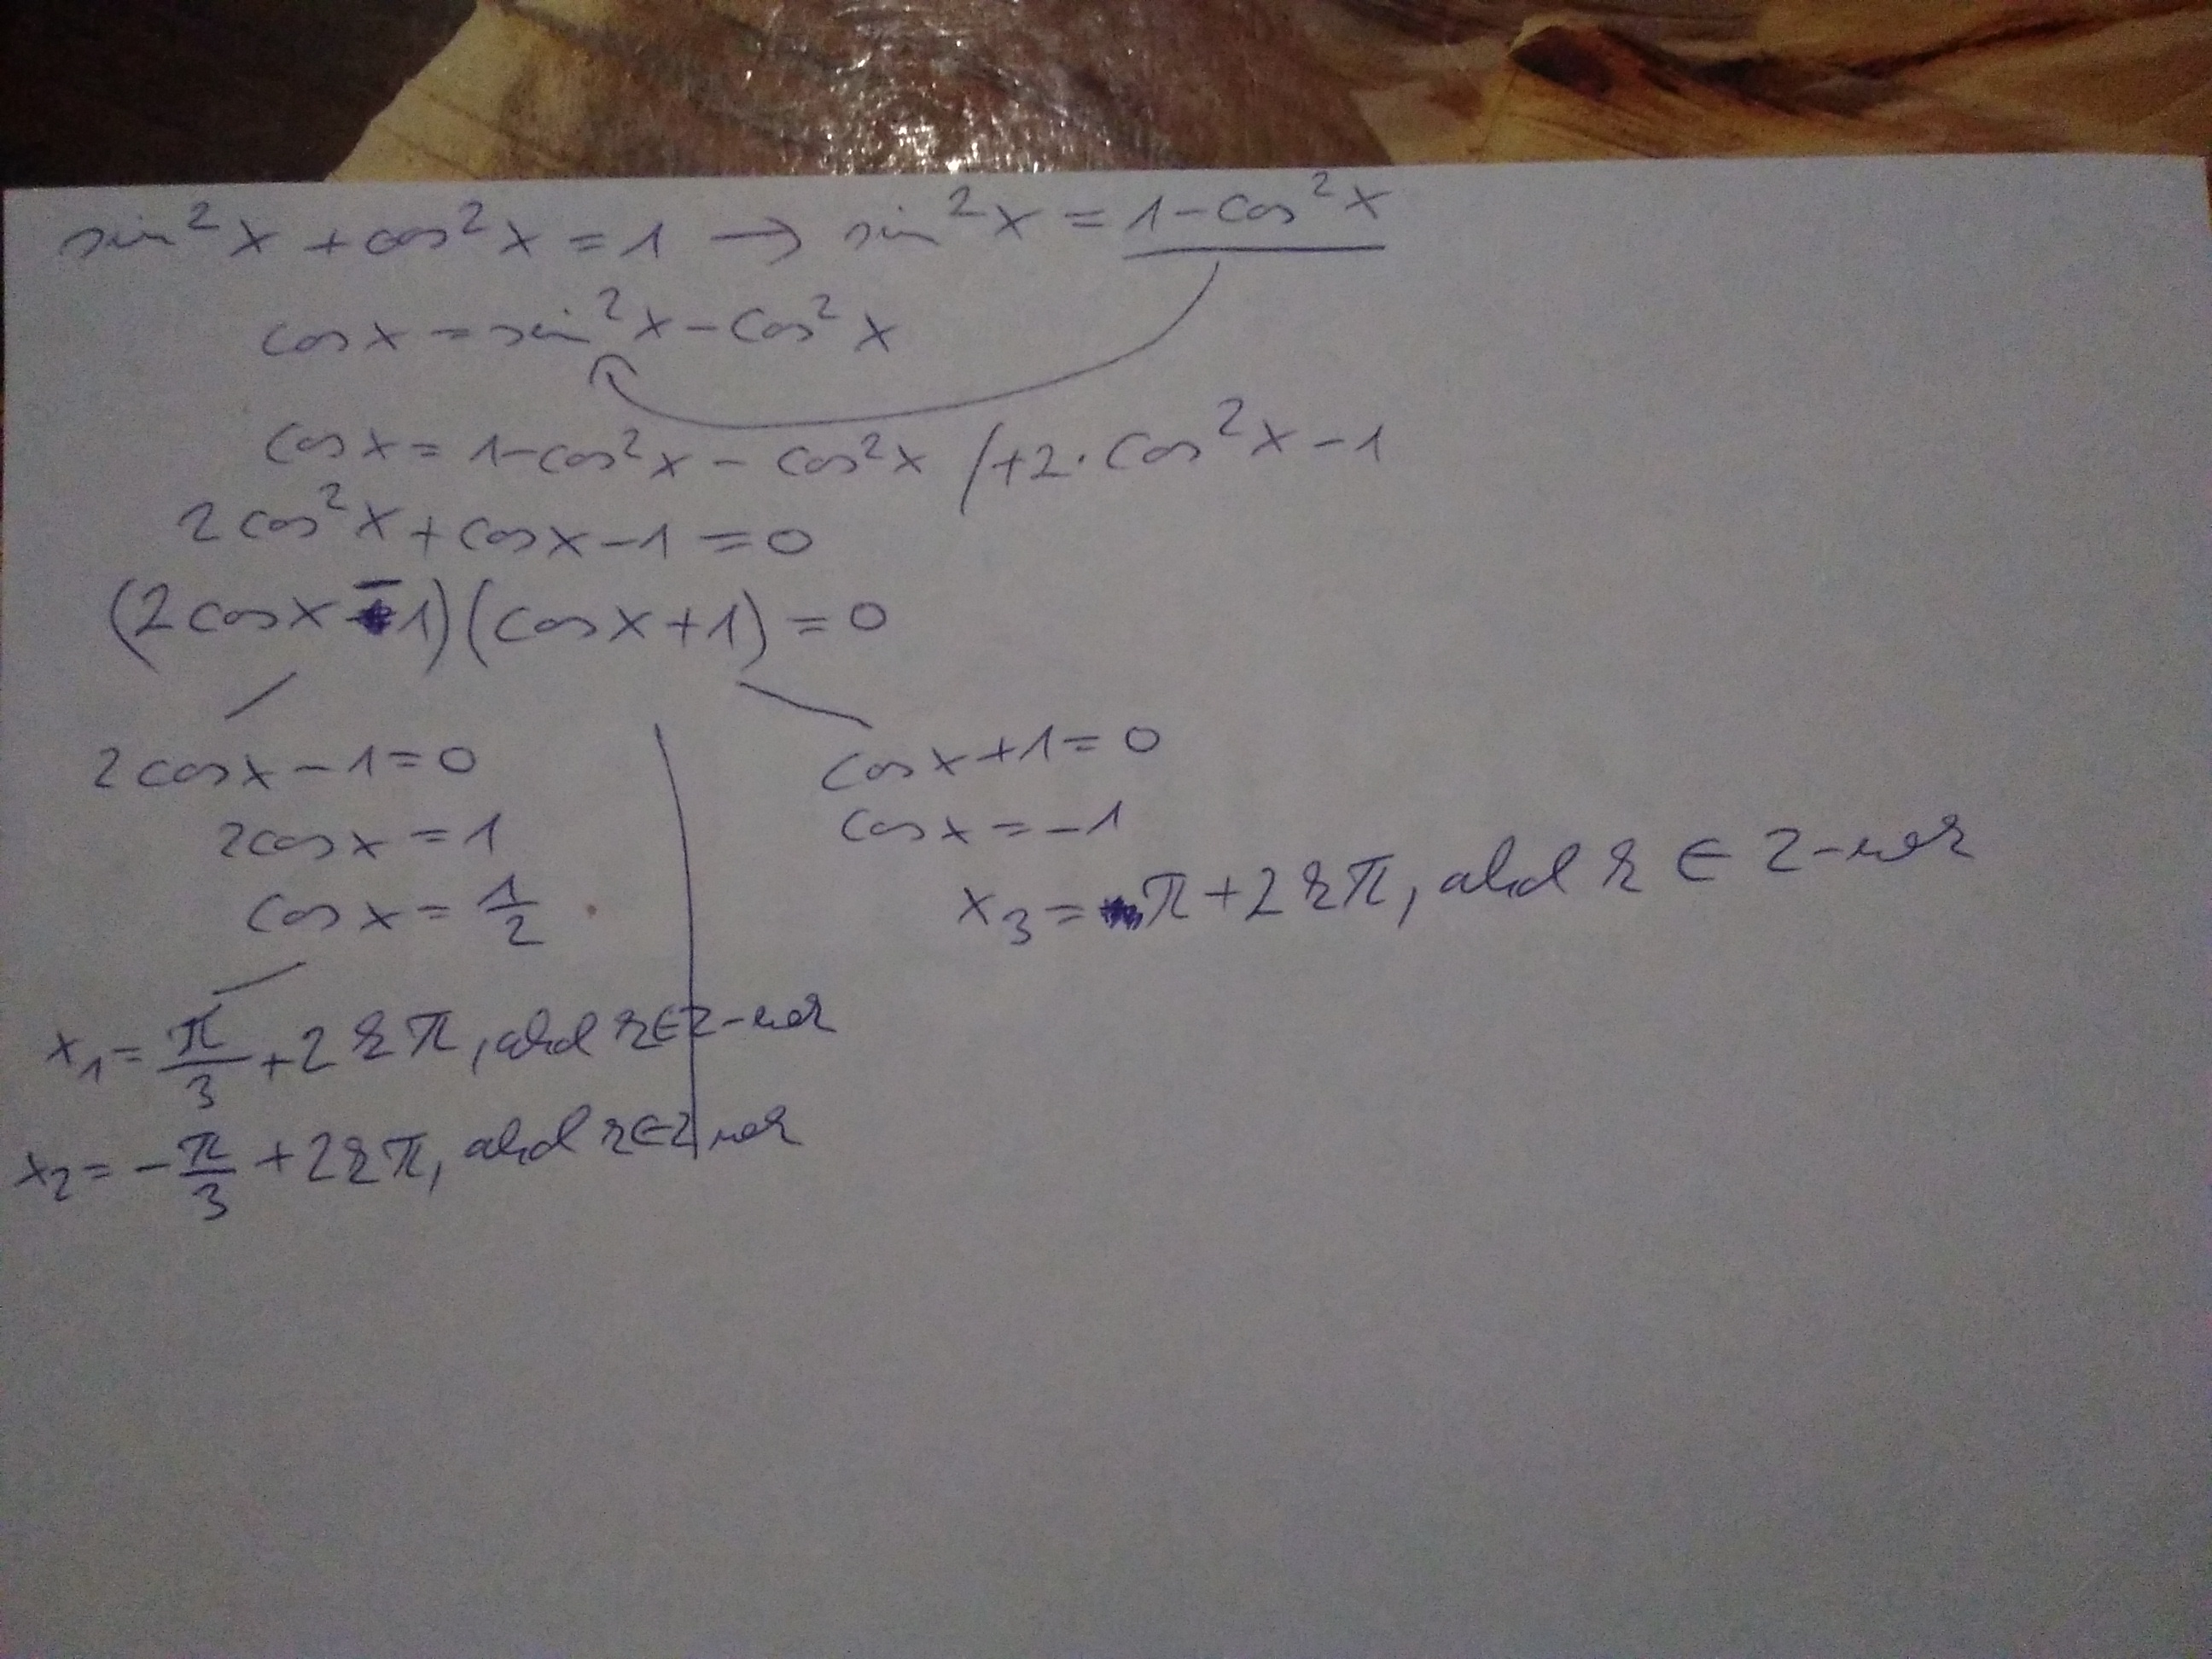 sin²x + cos²x = 1 → sin²x = 1 - cos²x
cos x = sin²x - cos²x
cos x = 1 - cos²x - cos²x /+2·cos²x - 1
2cos²x + cos x - 1 = 0
(2cos x - 1)(cos x + 1) = 0
2cos x - 1 = 0
2cos x = 1
cos x = 1/2
x₁ = π/3 + 2kπ, ahol k ∈ Z-nek
x₂ = -π/3 + 2kπ, ahol k ∈ Z-nek
cos x + 1 = 0
cos x = -1
x₃ = π + 2kπ, ahol k ∈ Z-nek